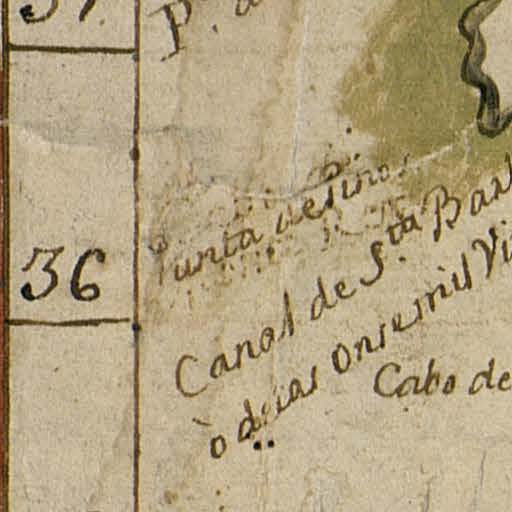 37.
P.
36
Punta de Pinos
Canal de S.ta Bar
ò de las Onse mil Vi
Cabo de